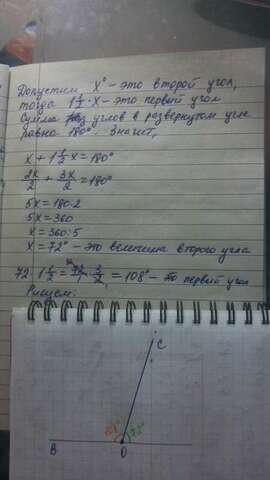 Допустим, x° - это второй угол,
тогда 1 1/2 · x - это первый угол
Сумма углов в развернутом угле
равна 180°. Значит,
x + 1 1/2 x = 180°
2x/2 + 3x/2 = 180°
5x = 180·2
5x = 360
x = 360:5
x = 72° - это величина второго угла
72 · 1 1/2 = 72/1 · 3/2 = 108° - это первый угол
Рисуем:
C
108° 72°
B O